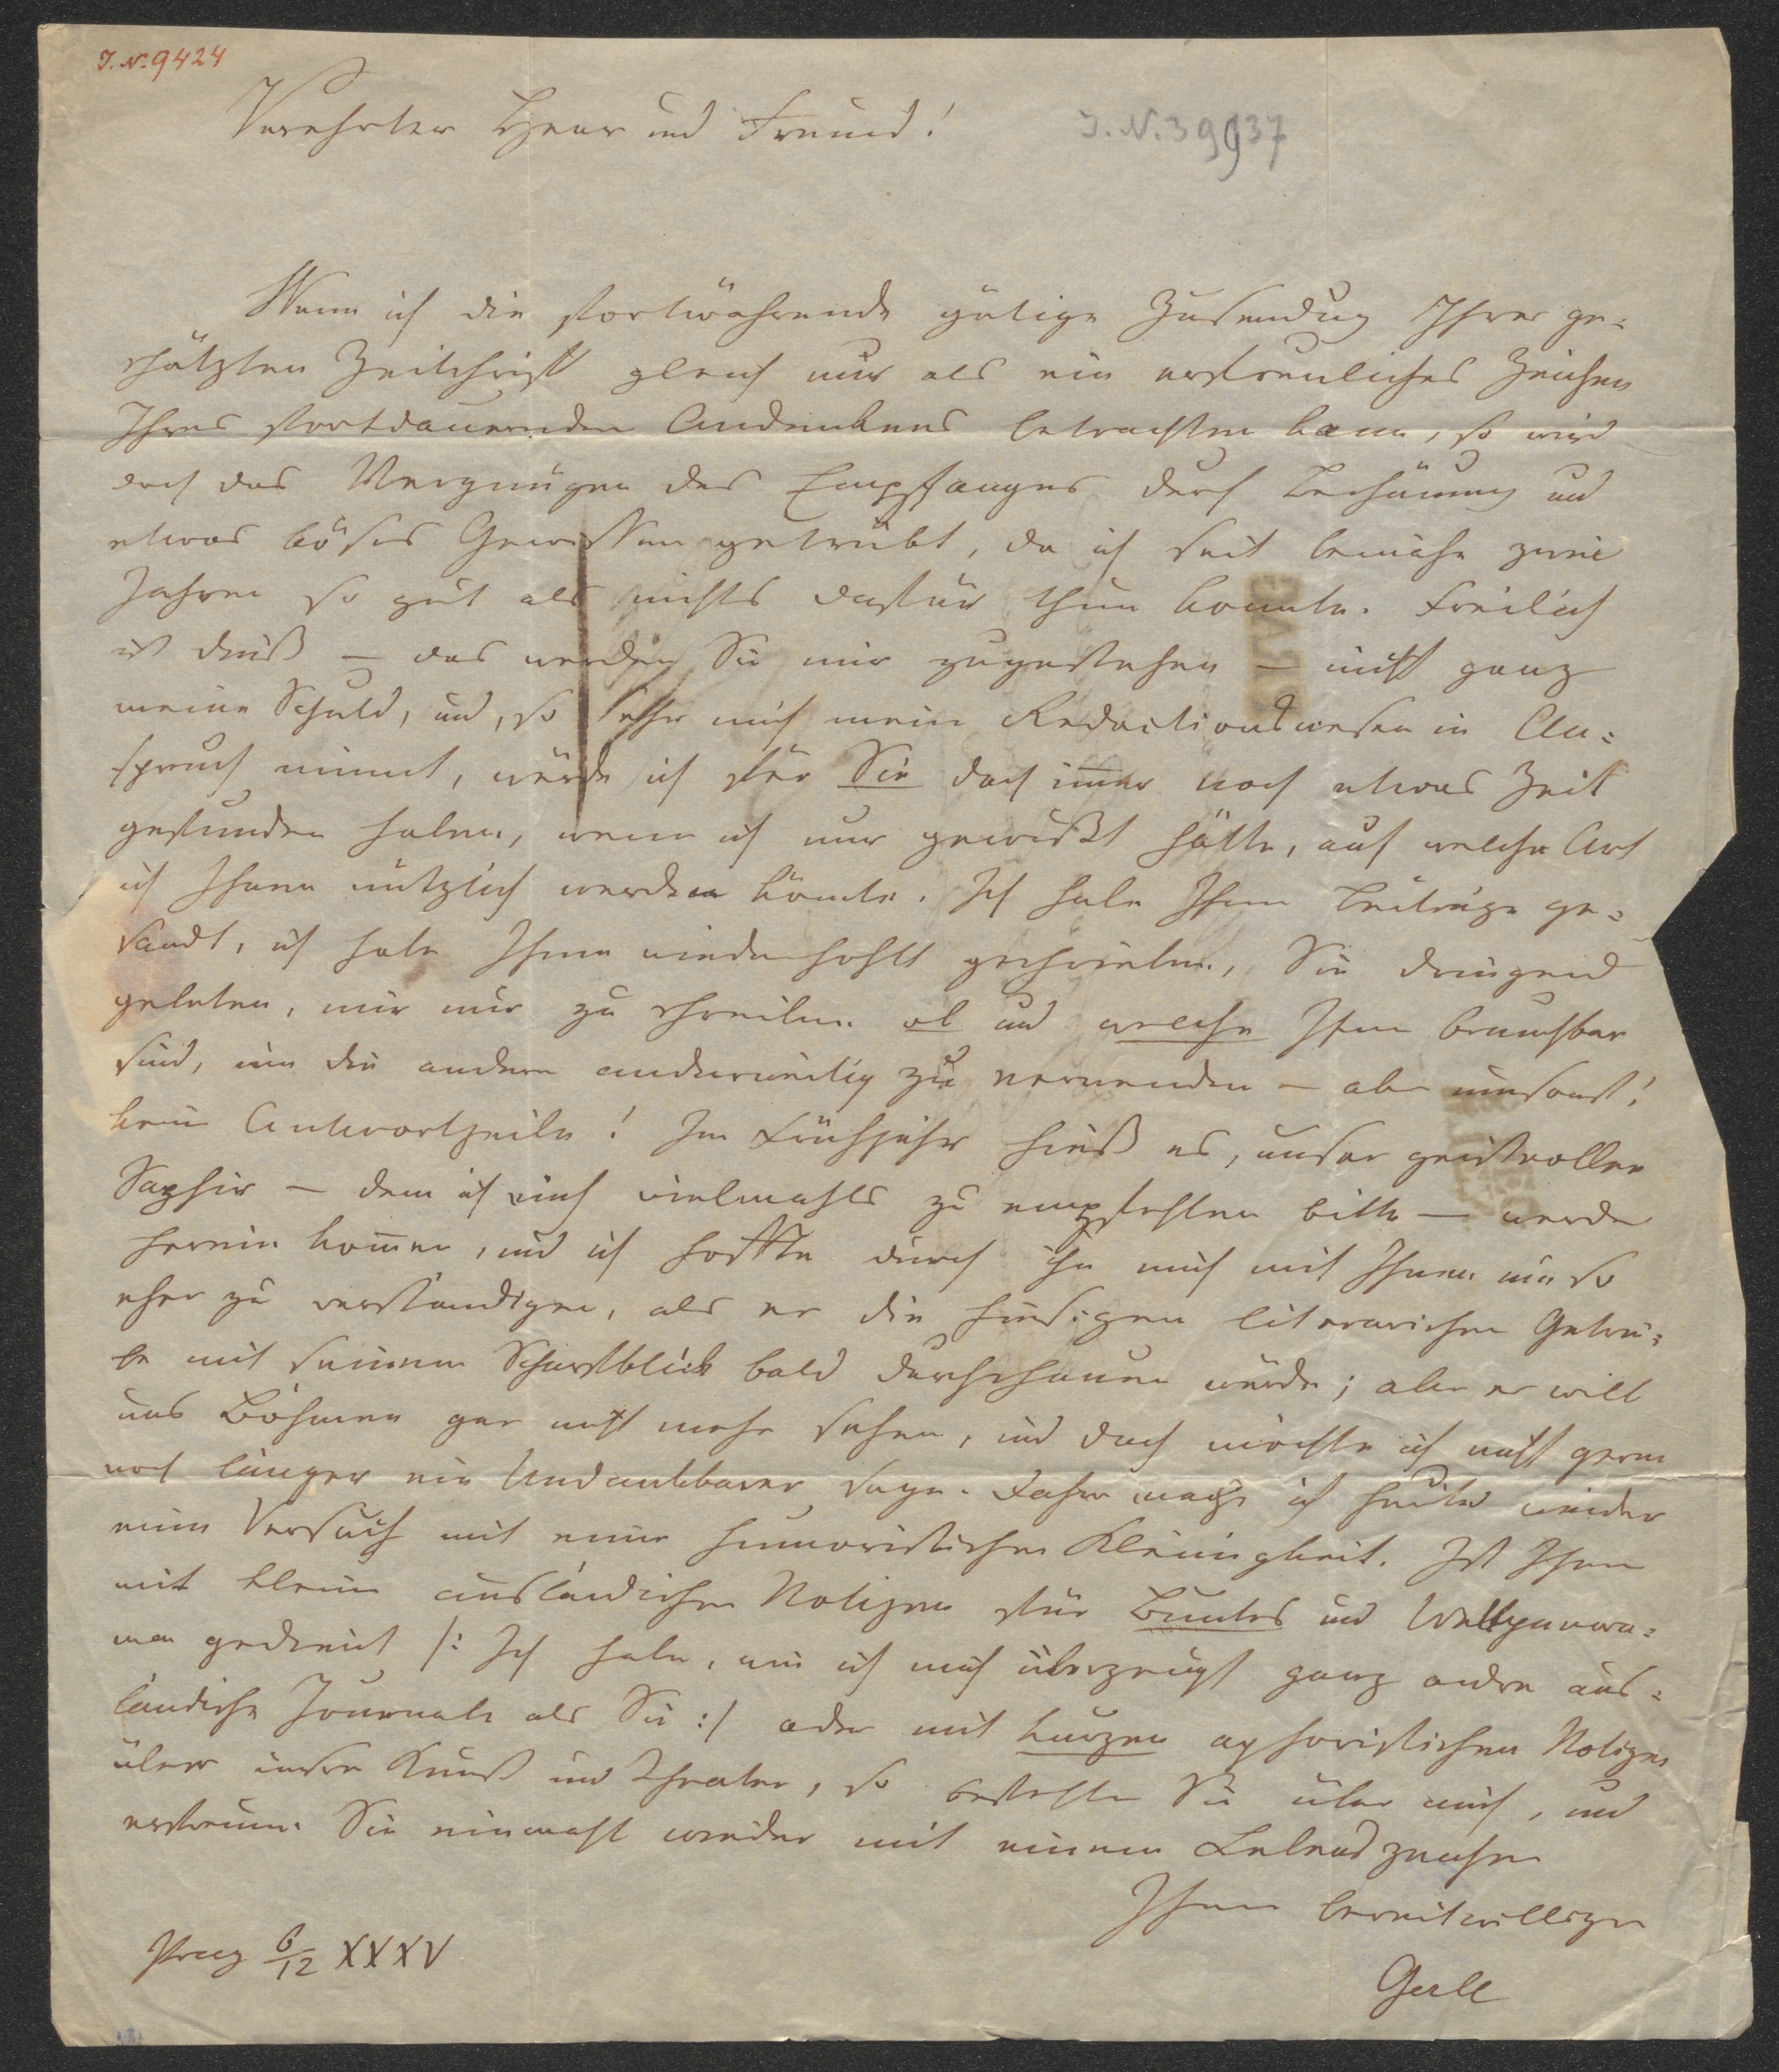 J. N. 9424
Verehrter Herr und Freund!
J. N. 39937
Wenn ich die fortwährende gütige Zusendung Ihrer ge=
schätzten Zeitschrift gleich nur als ein erfreuliches Zeichen
Ihres fortdauernden Andenkens betrachten kann, so wird
doch das Vergnügen des Empfanges durch Beschämung und
etwas böses Gewissen getrübt, da ich seit beinahe zwei
Jahren so gut als nichts dafür thun konnte. Freilich
ist dieß – das werden Sie mir zugestehen – nicht ganz
meine Schuld, und, so sehr mich mein Redactionswesen in An=
spruch nimmt, würde ich für Sie doch immer noch etwas Zeit
gefunden haben, wenn ich nur gewußt hätte, auf welche Art
ich Ihnen nützlich werden könnte. Ich habe Ihnen Beiträge ge=
sandt, ich habe Ihnen wiederhohlt geschrieben, Sie dringend
gebeten, mir nur zu schreiben ob und welche Ihnen brauchbar
sind, um die andern anderweitig zu verwenden – aber umsonst!
keine Antwortzeile! Im Frühjahr hieß es, unser geistvoller
Saphir – dem ich mich vielmahls zu empfehlen bitte – werde
herein kommen, und ich hoffte durch ihn mich mit Ihnen um so
eher zu verständigen, als er die hiesigen literarischen Getrie=
be mit seinem Scharfblick bald durchschauen würde; aber er will
uns Böhmen gar nicht mehr sehen, und doch möchte ich nicht gern
noch länger ein Undankbarer seyn. Daher mache ich heute wieder
einen Versuch mit einer humoristischen Kleinigkeit. Ist Ihnen
mit kleinen ausländischen Notizen für Buntes und Weltpanora=
ma gedient /: Ich habe, wie ich mich überzeugt ganz andre aus=
ländische Journale als Sie :/ oder mit kurzen aphoristischen Notizen
über unsre Kunst und Theater, so befehlen Sie über mich, und
erfreuen Sie einmahl wieder mit einem Lebenszeichen
Ihren bereitwilligen
Gerle
Prag 6/12 XXXV